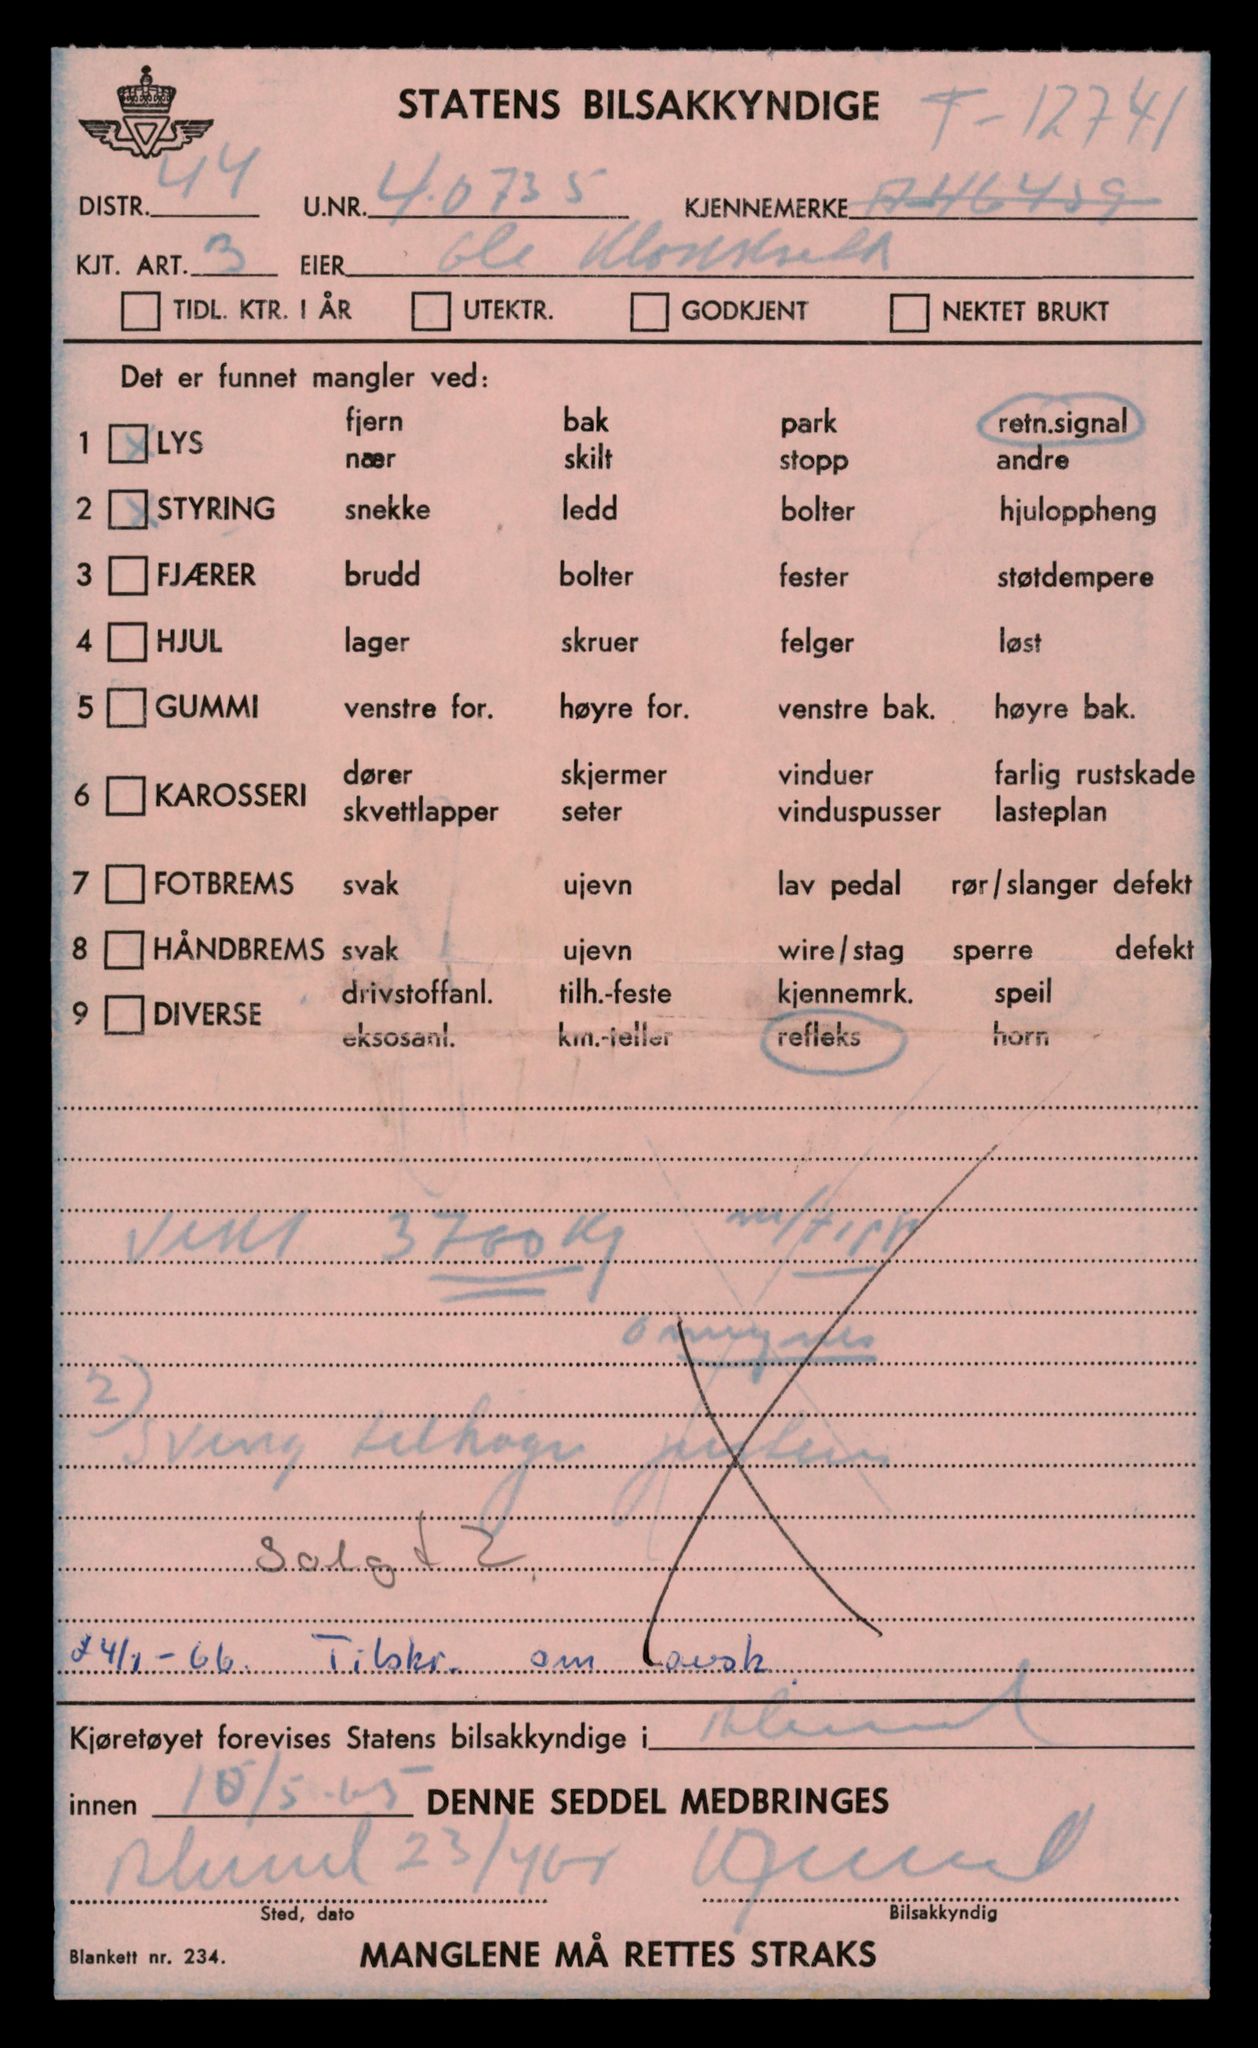 STATENS BILSAKKYNDIGE T-12741
DISTR. 44 U.NR. 4.0735 KJENNEMERKE
KJT. ART. 3 EIER Ole
TIDL. KTR. I ÅR UTEKTR. GODKJENT NEKTET BRUKT
Det er funnet mangler ved:
fjern bak park retn.signal
1 x LYS
nær skilt stopp andre
2 x STYRING snekke ledd bolter hjuloppheng
3 FJÆRER brudd bolter fester støtdempere
4 HJUL lager skruer felger løst
5 GUMMI venstre for. høyre for. venstre bak. høyre bak.
dører skjermer vinduer farlig rustskade
6 KAROSSERI
skvettlapper seter vinduspusser lasteplan
7 FOTBREMS svak ujevn lav pedal rør/slanger defekt
8 HÅNDBREMS svak ujevn wire/stag sperre defekt
drivstoffanl. tilh.-feste kjennemrk. speil
9 DIVERSE
eksosanl. km.-teller refleks horn
Vekt 3700 kg m/tipp
2)
Sving tilhøgre
Solgt 2
4/1-66. Tilskr. om avsk.
Kjøretøyet forevises Statens bilsakkyndige i Ålesund
innen 10/5-65 DENNE SEDDEL MEDBRINGES
Ålesund 23/4 65
Sted, dato Bilsakkyndig
Blankett nr. 234. MANGLENE MÅ RETTES STRAKS